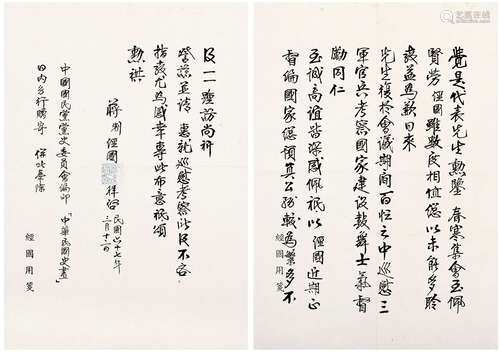 覺是代表先生勳鑒 春寒集會至佩
賢勞 經國雖數度相值總以未能多聆
教益為歉日來
先生復於會議期間百忙之中巡慰三
軍官兵考察國家建設鼓舞士氣督
勵同仁
至誠高誼皆深感佩祇以 經國近期正
督編國家總預算公務較為繁多不
經國用箋
及一一踵訪尚祈
鑒諒並請 惠就巡慰考察所及不吝
指教尤為感幸專此布意祇頌
勳祺
蔣制經國 拜啓
民國六十七年
三月十二日
中國國民黨黨史委員會編印「中華民國史畫」
日內另行贈寄 併此奉陳
經國用箋